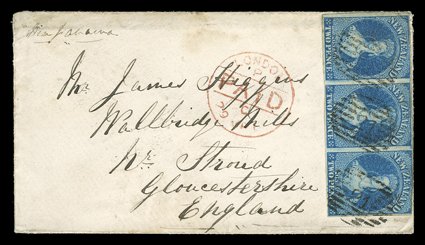 via Panama
Mr James Higgins
Wallbridge Mills
Nr Stroud
Gloucestershire
England
LONDON
PAID
NEW ZEALAND
TWO PENCE
NEW ZEALAND
TWO PENCE
NEW ZEALAND
TWO PENCE